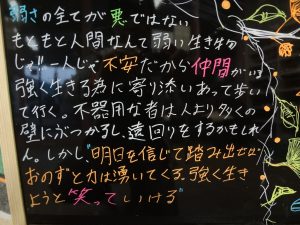 弱さの全てが悪ではない
もともと人間なんて弱い生き物
じゃ一人じゃ不安だから仲間がいる
強く生きる為に寄り添いあって歩い
て行く。不器用な者は人より多くの
壁にぶつかるし、遠回りをするかもしれ
ん。しかし"明日を信じて踏み出せば
おのずと力は湧いてくる。強く生き
ようと笑っていける"